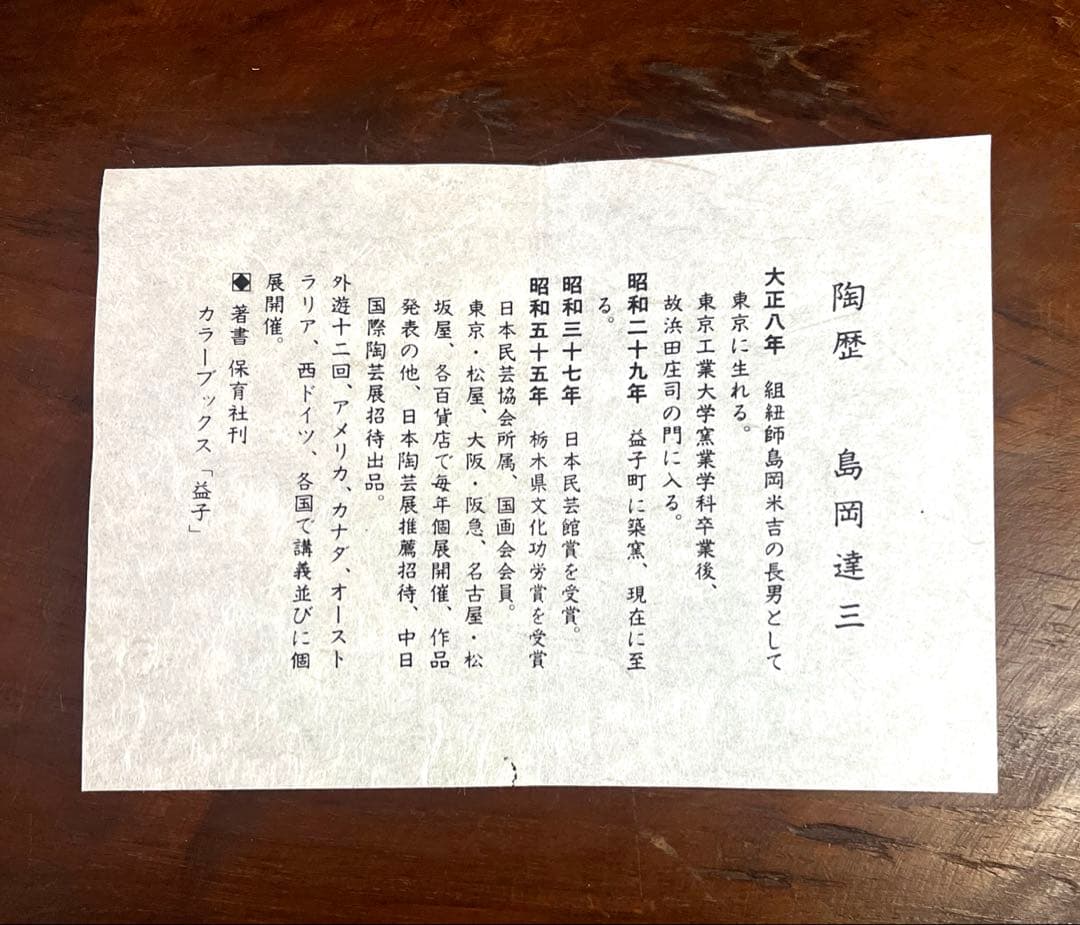 陶歴 島岡達三
大正八年 組紐師島岡米吉の長男として
東京に生れる。
東京工業大学窯業学科卒業後、
故浜田庄司の門に入る。
昭和二十九年 益子町に築窯、現在に至
る。
昭和三十七年 日本民芸館賞を受賞。
昭和五十五年 栃木県文化功労賞を受賞
日本民芸協会所属、国画会会員。
東京・松屋、大阪・阪急、名古屋・松
坂屋、各百貨店で毎年個展開催、作品
発表の他、日本陶芸展推薦招待、中日
国際陶芸展招待出品。
外遊十二回、アメリカ、カナダ、オースト
ラリア、西ドイツ、各国で講義並びに個
展開催。
◆ 著書 保育社刊
カラーブックス「益子」